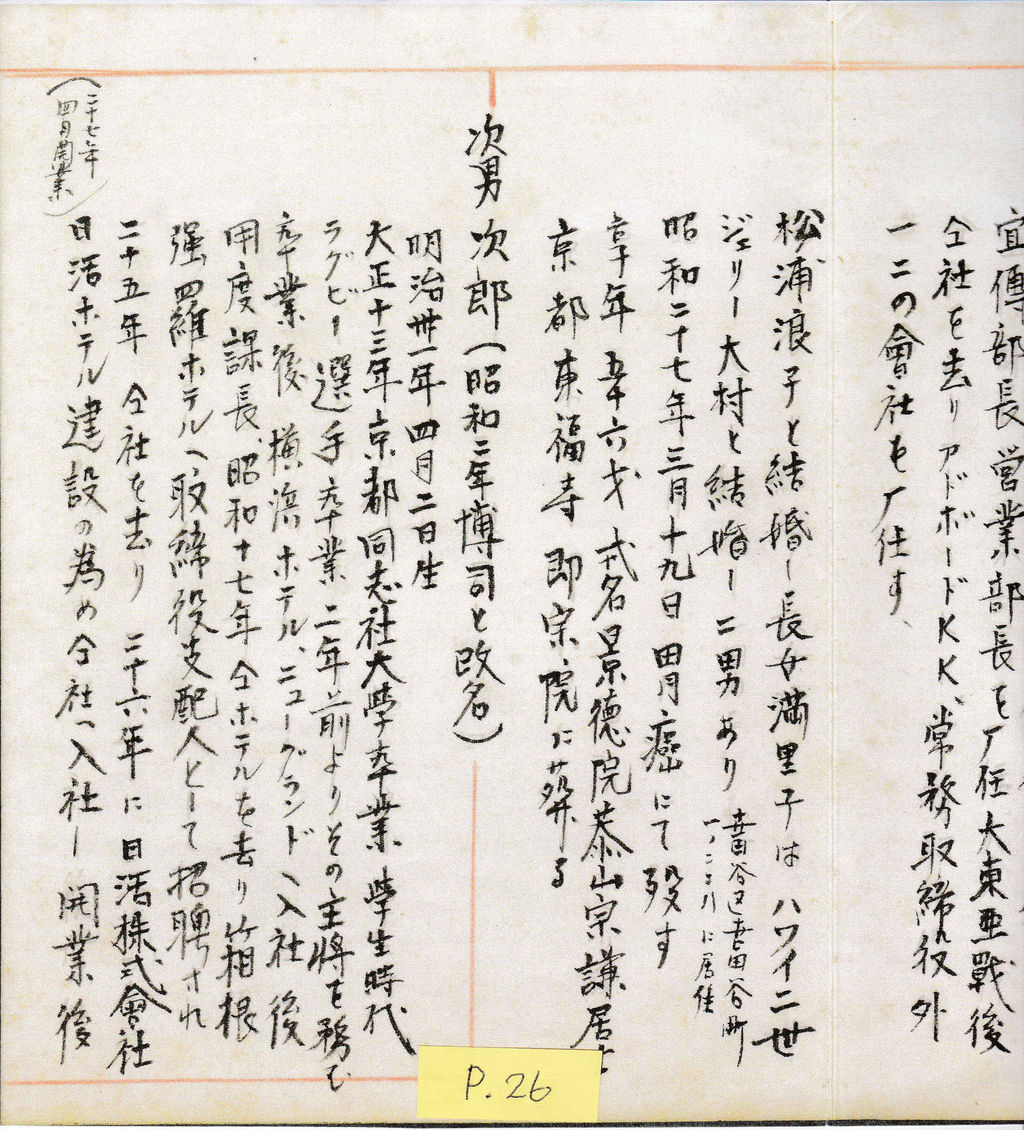 宣傳部長営業部長を歴任大東亜戰後
仝社を去りアドボードKK、常務取締役外
一二の會社も歴任す、
松浦浪子と結婚し長女満里子はハワイ二世
ジェリー大村と結婚し二男あり
世田谷区世田谷町
に居住
昭和二十七年三月十九日胃癌にて歿す
享年五十六才 戒名景徳院恭山宗謙居士
京都東福寺 即宗院に葬る
次男 次郎(昭和二年博司と改名)
明治卅一年四月二日生
大正十三年京都同志社大學卆業 學生時代
ラグビー選手卆業二年前よりその主将を務む
卆業後 横濱ホテル、ニューグランド入社後
用度課長、昭和十七年仝ホテルを去り箱根
强羅ホテルへ取締役支配人として招聘され
二十五年 仝社を去り 二十六年に日活株式會社
日活ホテル建設の為め仝社へ入社し 開業後
(二十七年
四月開業)
P.26